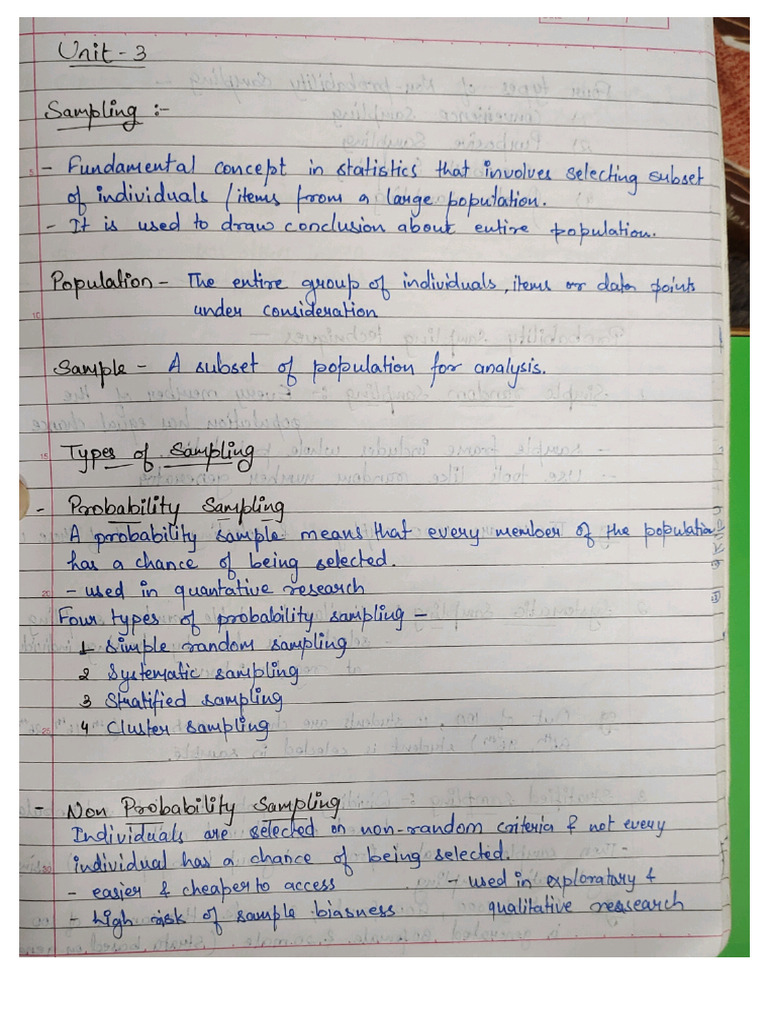 Unit - 3
Sampling :-
- Fundamental concept in statistics that involves selecting subset
of individuals / items from a large population.
- It is used to draw conclusion about entire population.
Population - The entire group of individuals, items or data points
under consideration
Sample - A subset of population for analysis.
Types of Sampling
- Probability Sampling
A probability sample means that every member of the population
has a chance of being selected.
- used in quantative research
Four types of probability sampling -
1 Simple random sampling
2 Systematic sampling
3 Stratified sampling
4 Cluster sampling
- Non Probability Sampling
Individuals are selected on non-random criteria & not every
individual has a chance of being selected.
- easier & cheaper to access - used in exploratory &
- high risk of sample biasness qualitative research